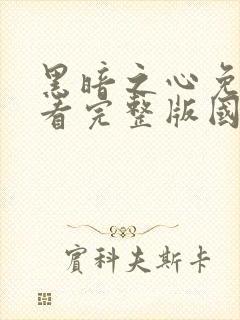 黑暗之心免
看完整版國
賓科夫斯卡